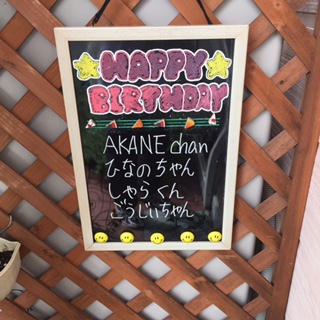 HAPPY
BIRTHDAY
AKANE chan
ひなのちゃん
しゃらくん
ごうじいちゃん